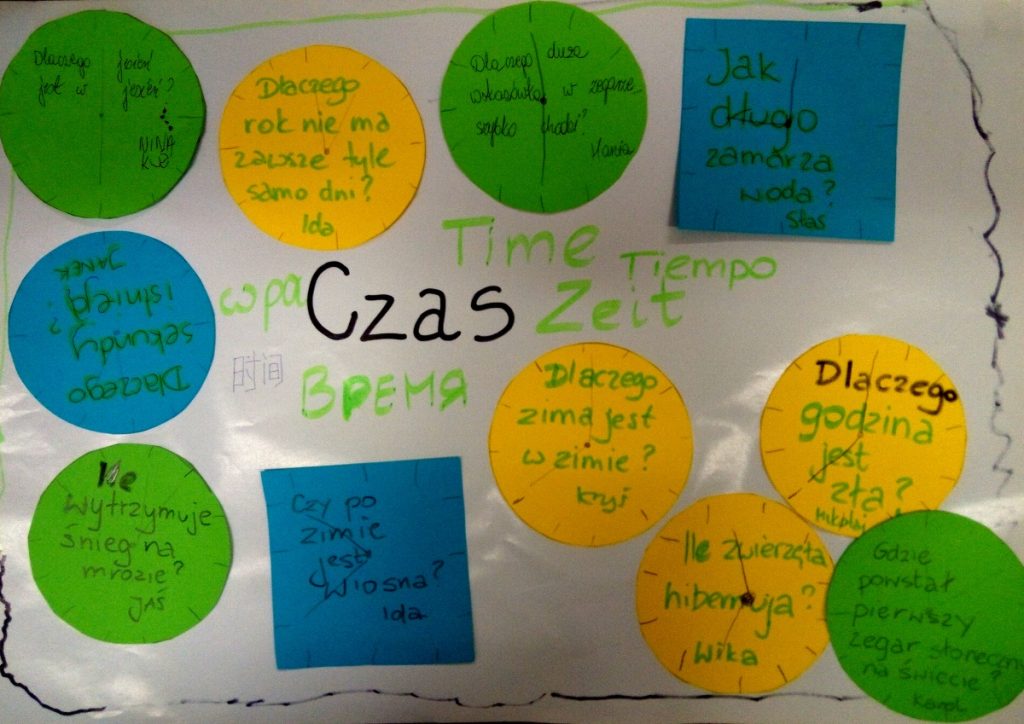 Dlaczego jesień
jest w jesień?
NINA
Dlaczego
rok nie ma
zawsze tyle
samo dni?
Ida
Dlaczego duża
wskazówka w zegarze
szybko chodzi?
Hania
Jak
długo
zamarza
woda?
Staś
Dlaczego
sekundy
istnieją?
JANEK
Time
Tiempo
Czas
Zeit
时间
Время
Ile
wytrzymuje
śnieg na
mrozie?
JAŚ
Czy po
zimie
jest
wiosna?
Ida
Dlaczego
zima jest
w zimie?
Krzyś
Dlaczego
godzina
jest
zła?
Mikołaj
Ile zwierzęta
hibernują?
Wika
Gdzie
powstał
pierwszy
zegar słoneczny
na świecie?
Karol